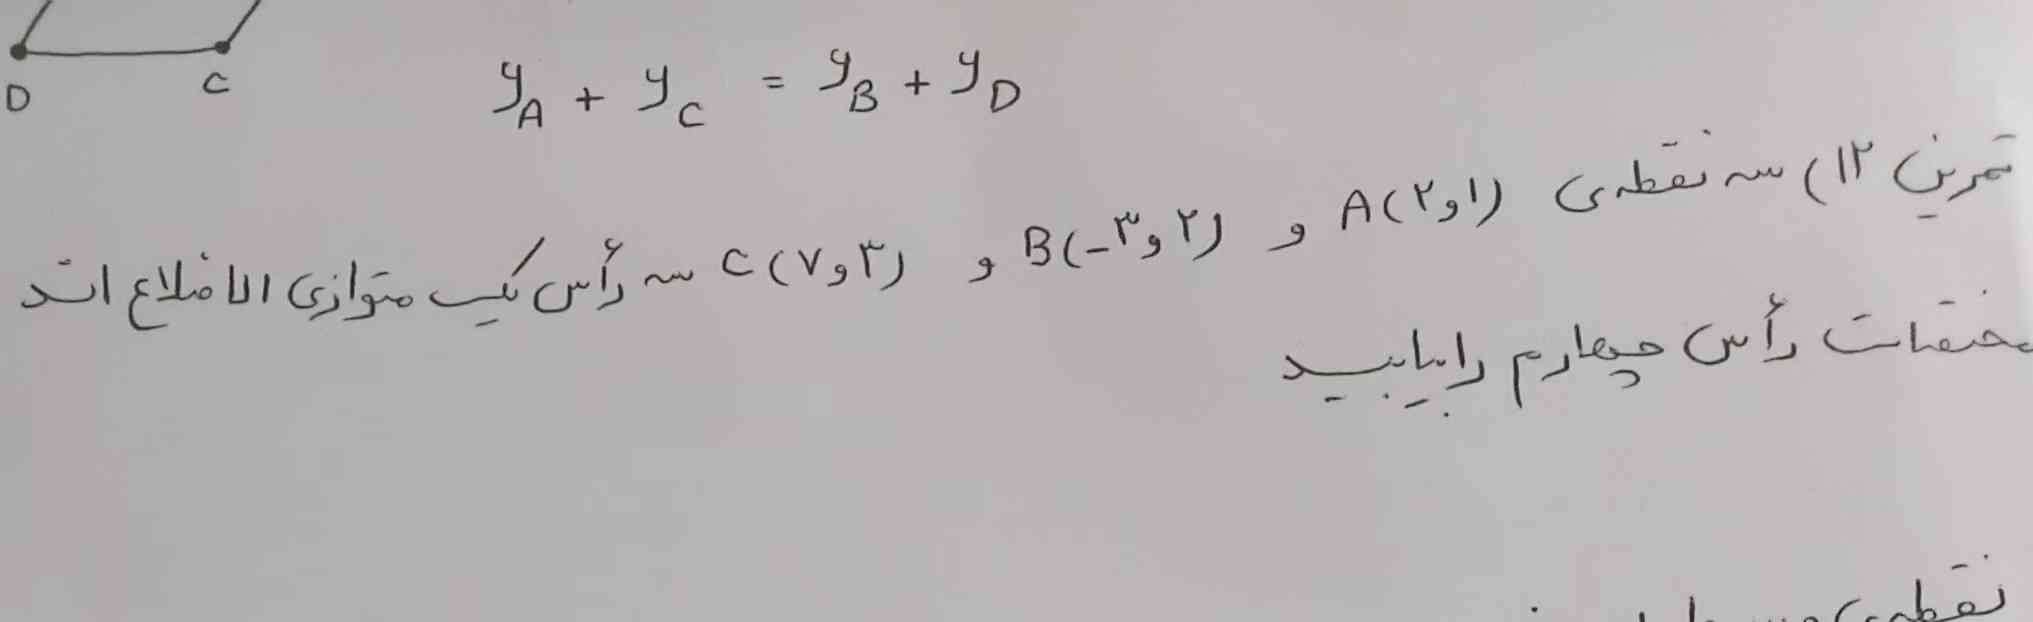 D C
y_A + y_C = y_B + y_D
تمرین ۱۲) سه نقطه‌ی A(۲و۱) و B(-۳و۲) و C(۷و۳) سه رأس یک متوازی الاضلاع اند
مختصات رأس چهارم را بیابید
نقطه‌ی